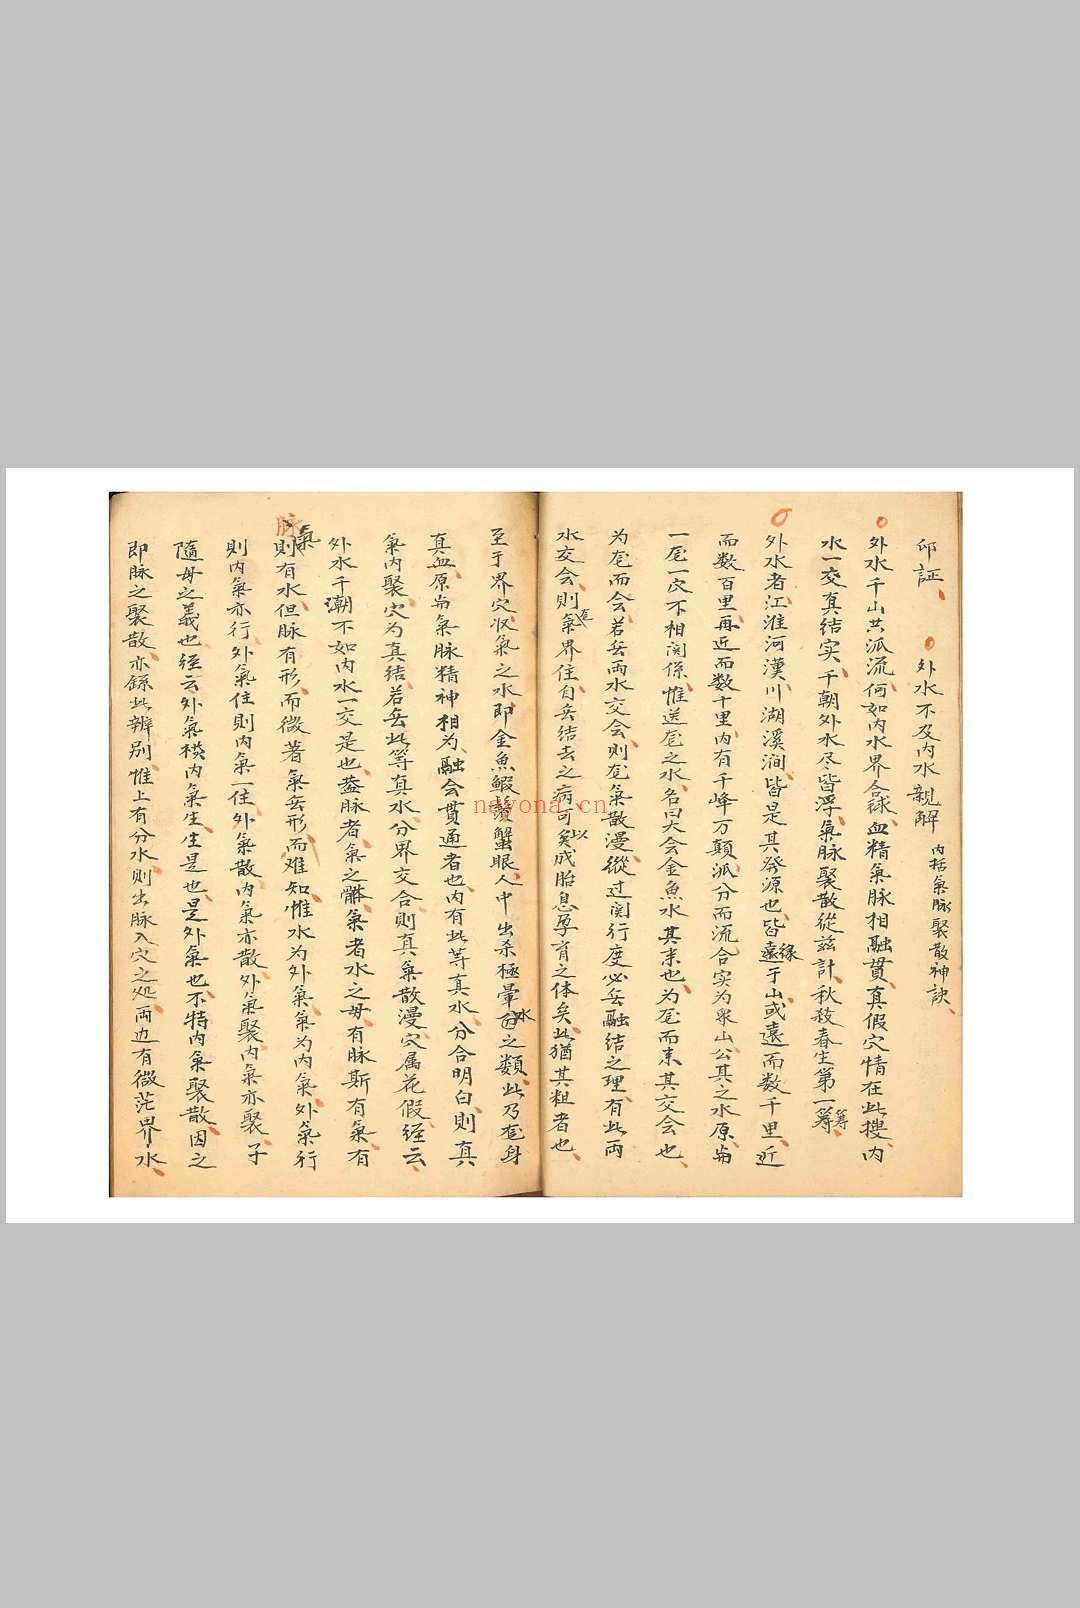 印証、 外水不及内水親解 内括氣脉聚散神訣、
外水千山共派流、何如内水界合毬、血精氣脉相融貫、真假穴情在此搜、内
水一交真结实、千朝外水尽皆浮、氣脉聚散從兹計、秋殺春生第一筹、籌
外水者、江淮河漢川湖溪澗、皆是其発源也、皆遠緣于山、或遠而数千里、近
而数百里、再近而数十里、内有千峰万巅、派分而流、合实为衆山公共之水、原尚
一龙一穴不相関係、惟送龙之水、名曰大会金魚水、其来也、为龙而来、其交会也、
为龙而会、若無両水交会、則龙氣散漫、縱过関行度、必無融结之理、有此両
水交会、則氣界住、自無结去之病、可以成胎息孕育之体矣、此猶其粗者也、
至于界穴収氣之水、即金魚蝦鬚蟹眼、人中出杀極暈水之類、此乃龙身
真血、原尚氣脉精神相为融会貫通者也、内有此等真水、分合明白、則真
氣内聚、穴为真结、若無此等真水、分界交合、則真氣散漫、穴属花假、経云
外水千潮不如内水一交是也、盖脉者、氣之體、氣者水之母、有脉斯有氣、有
氣則有水、但脉有形、而微著、氣無形、而难知、惟水为外氣、氣为内氣、外氣行
則内氣亦行、外氣住則内氣一住、外氣散内氣亦散、外氣聚内氣亦聚、子
隨母之義也、経云外氣橫内氣生、生是也、是外氣也、不特内氣聚散因之
即脉之聚散、亦繇此辨別、惟上有分水、則出脉入穴之处、両边有微茫界水、
nayona.cn